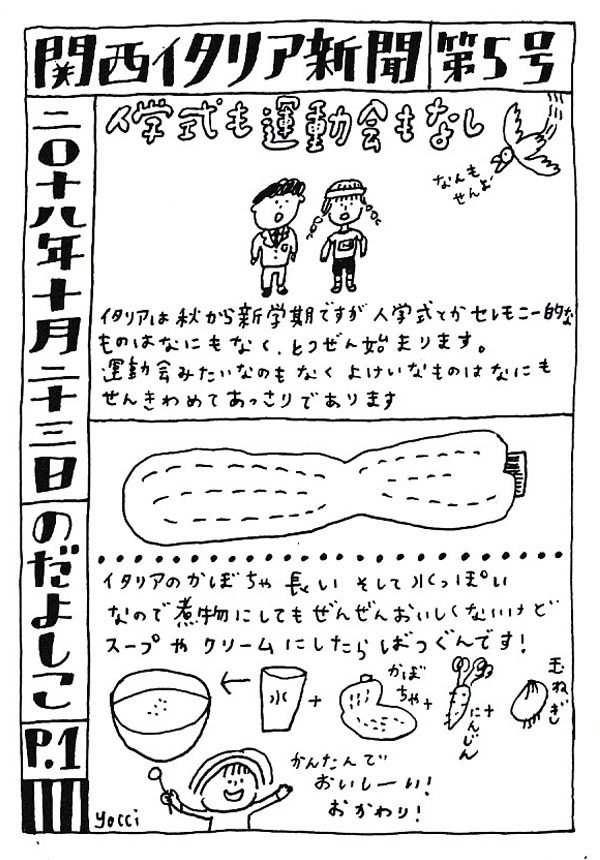 関西イタリア新聞
第5号
二〇十八年十月二十三日
のだよしこ
P.1
入学式も運動会もなし
なんも
せんよ
イタリアは秋から新学期ですが入学式とかセレモニー的な
ものはなにもなく、とつぜん始まります。
運動会みたいなのもなくよけいなものはなにも
せんきわめてあっさりであります
イタリアのかぼちゃ長いそして水っぽい
なので煮物にしてもぜんぜんおいしくないけど
スープやクリームにしたらばつぐんです!
水
+
かぼ
ちゃ
+
にんじん
+
玉ねぎ
かんたんで
おいしーい!
おかわり!
yocci